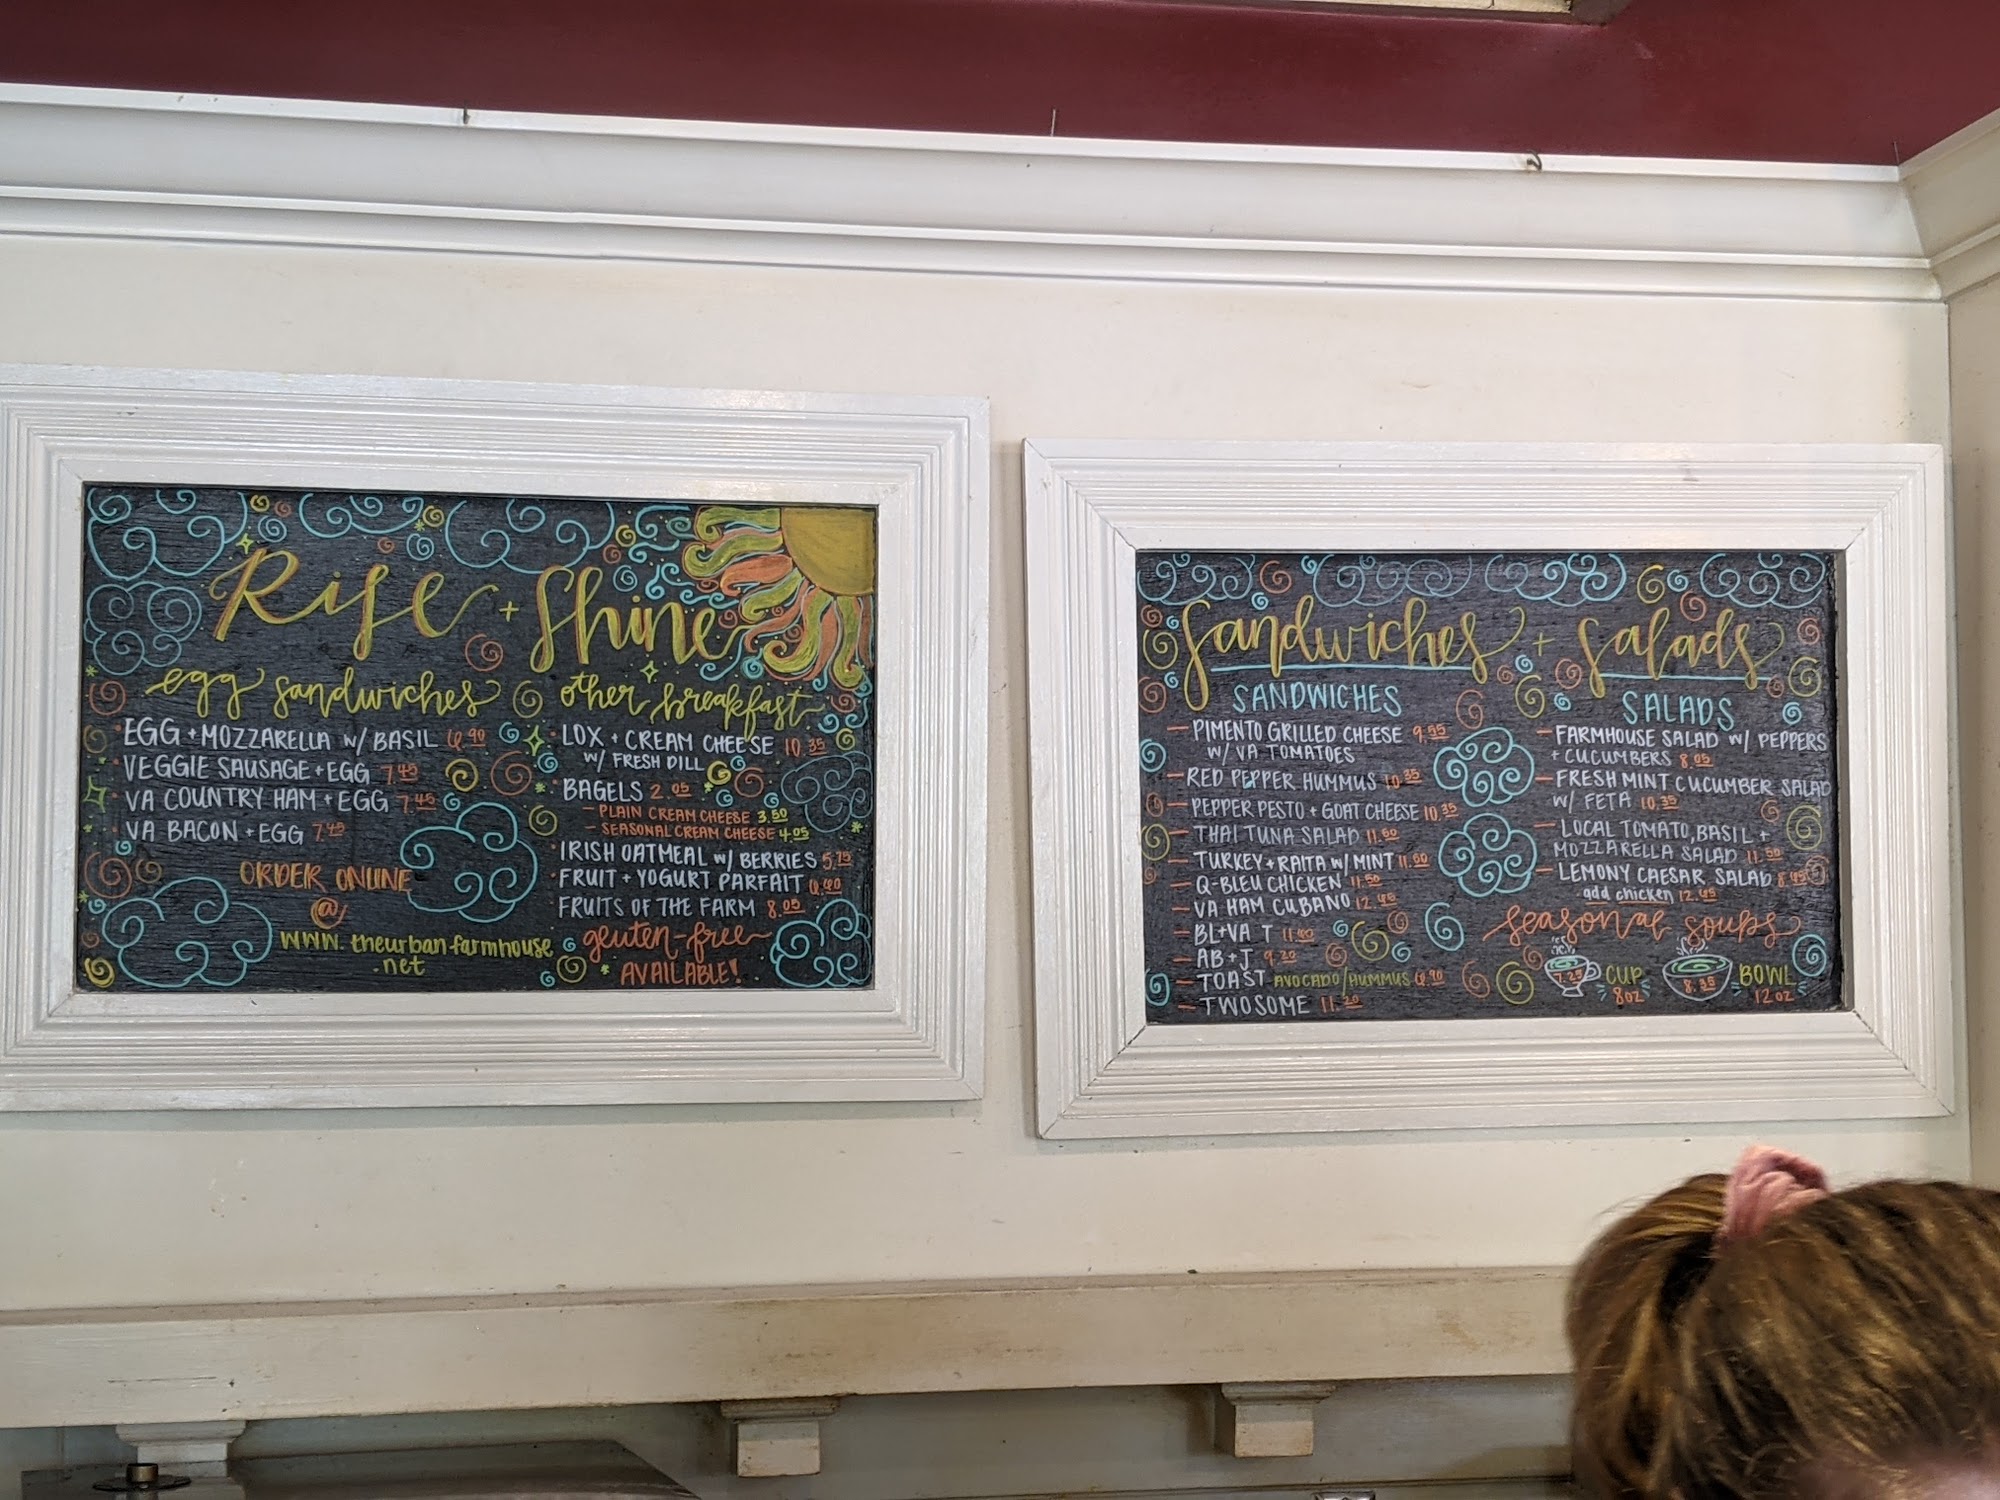 Rise + Shine
egg sandwiches
EGG + MOZZARELLA W/ BASIL 6.90
VEGGIE SAUSAGE + EGG 7.45
VA COUNTRY HAM + EGG 7.45
VA BACON + EGG 7.45
ORDER ONLINE
@
WWW.theurbanfarmhouse
.net
other breakfast
LOX + CREAM CHEESE 10.35
W/ FRESH DILL
BAGELS 2.05
- PLAIN CREAM CHEESE 3.50
- SEASONAL CREAM CHEESE 4.05
IRISH OATMEAL W/ BERRIES 5.75
FRUIT + YOGURT PARFAIT 6.40
FRUITS OF THE FARM 8.05
gluten-free
AVAILABLE!
Sandwiches + Salads
SANDWICHES
- PIMENTO GRILLED CHEESE 9.55
W/ VA TOMATOES
- RED PEPPER HUMMUS 10.35
- PEPPER PESTO + GOAT CHEESE 10.35
- THAI TUNA SALAD 11.50
- TURKEY + RAITA W/ MINT 11.50
- Q-BLEU CHICKEN 11.50
- VA HAM CUBANO 12.45
- BL+VA T 11.40
- AB + J 9.20
- TOAST AVOCADO/HUMMUS 6.90
- TWOSOME 11.20
SALADS
- FARMHOUSE SALAD W/ PEPPERS
+ CUCUMBERS 8.05
- FRESH MINT CUCUMBER SALAD
W/ FETA 10.35
- LOCAL TOMATO, BASIL +
MOZZARELLA SALAD 11.50
- LEMONY CAESAR SALAD 8.45
add chicken 12.45
seasonal soups
7.25 CUP
8oz
8.35 BOWL
12oz